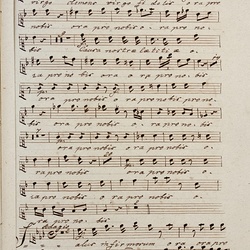 virgo clemens virgo fidelis ora pro
nobis ora pro nobis ora pro no-
bis causa nostrae laetitiae o-
ra pro nobis ora ora pro nobis
ora pro nobis ora pro nobis pro no-
bis ora pro nobis ora pro nobis
ora pro nobis ora pro nobis o-
ra pro nobis ora pro nobis o-
ra pro nobis ora pro nobis o-
ra pro nobis
Adagio
Salus infirmorum ora ora pro